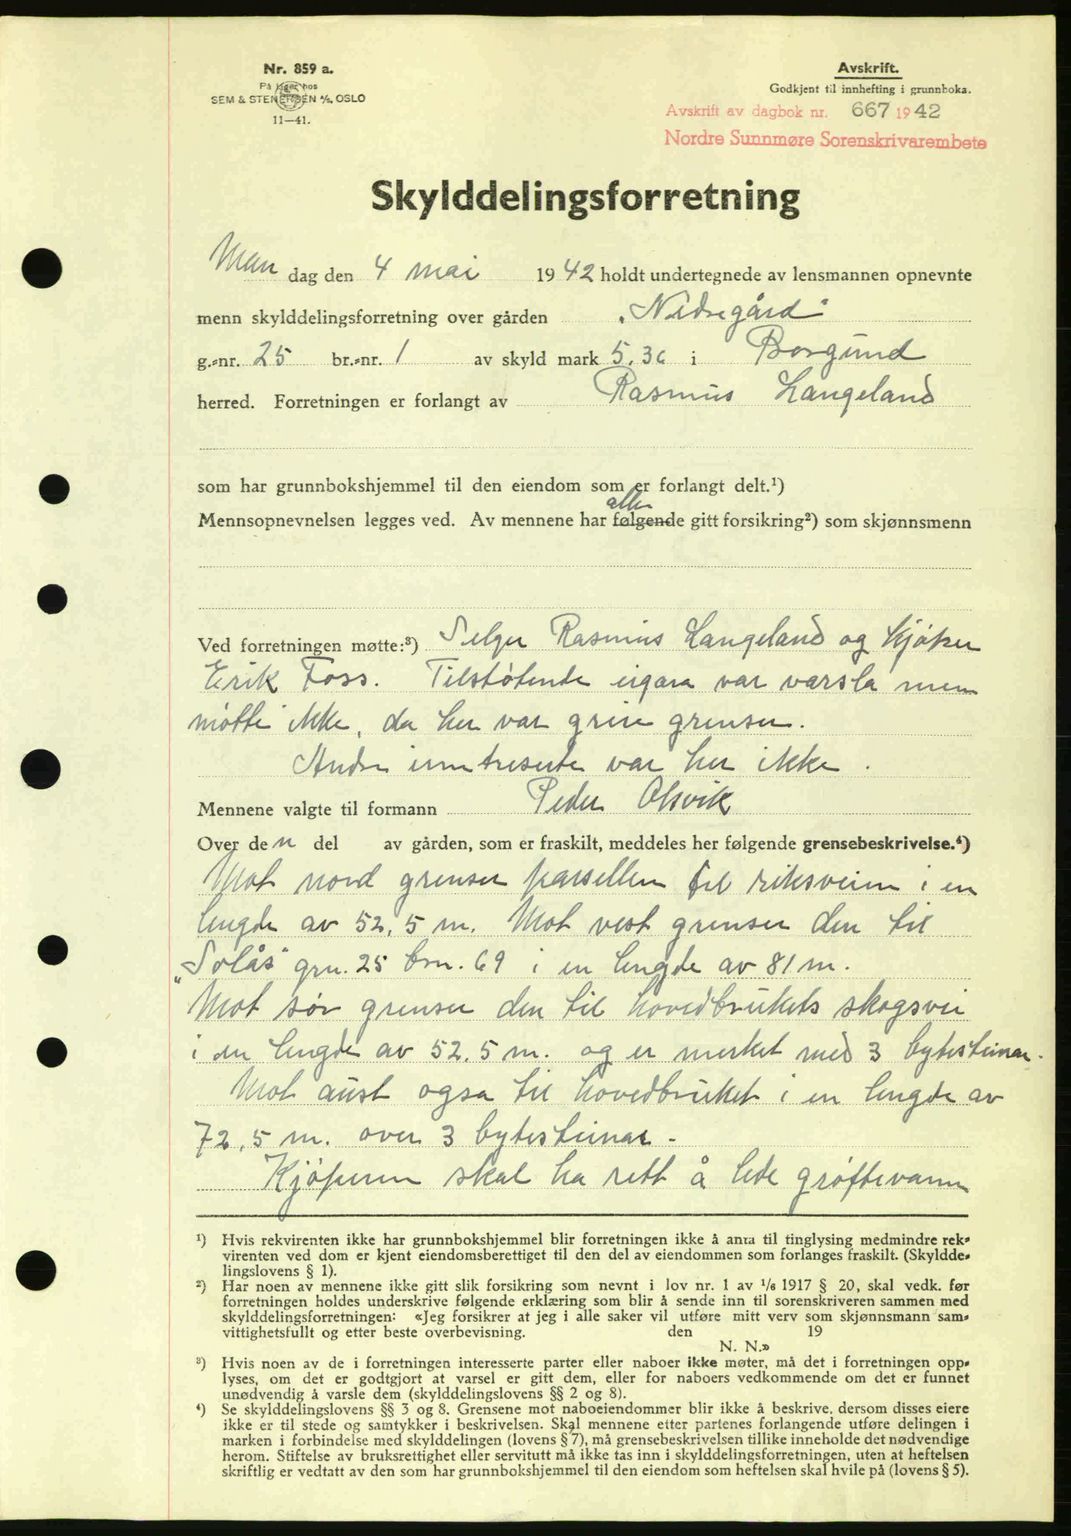 Nr. 859 a.
På lager hos
SEM & STENERSEN A/S, OSLO
11—41.
Avskrift.
Godkjent til innhefting i grunnboka.
Avskrift av dagbok nr. 667 1942
Nordre Sunnmøre Sorenskrivarembete
Skylddelingsforretning
Man dag den 4 mai 1942 holdt undertegnede av lensmannen opnevnte
menn skylddelingsforretning over gården „Nedregård"
g.-nr. 25 br.-nr. 1 av skyld mark 5.36 i Borgund
herred. Forretningen er forlangt av Rasmus Langeland
som har grunnbokshjemmel til den eiendom som er forlangt delt.¹)
alle
Mennsopnevnelsen legges ved. Av mennene har følgende gitt forsikring²) som skjønnsmenn
Ved forretningen møtte:³) Selger Rasmus Langeland og kjøper
Erik Foss. Tilstøtende eigara var varsla men
møtte ikke, da her var greie grenser.
Andre inntreserte var her ikke.
Mennene valgte til formann Peder Okvik
Over den del av gården, som er fraskilt, meddeles her følgende grensebeskrivelse.⁴)
Mot nord grenser parsellen til riksveien i en
lengde av 52,5 m. Mot vest grenser den til
„Solås" grn. 25 brn. 69 i en lengde av 81 m.
Mot sør grenser den til hovedbrukets skogsvei
i en lengde av 52.5 m. og er merket med 3 bytesteinar.
Mot aust ogsa til hovedbruket i en lengde av
72,5 m. over 3 bytesteinar -
Kjøperen skal ha rett å lede grøftevann
¹) Hvis rekvirenten ikke har grunnbokshjemmel blir forretningen ikke å anta til tinglysing medmindre rek-
virenten ved dom er kjent eiendomsberettiget til den del av eiendommen som forlanges fraskilt. (Skyldde-
lingslovens § 1).
²) Har noen av mennene ikke gitt slik forsikring som nevnt i lov nr. 1 av 1/6 1917 § 20, skal vedk. før
forretningen holdes underskrive følgende erklæring som blir å sende inn til sorenskriveren sammen med
skylddelingsforretningen: «Jeg forsikrer at jeg i alle saker vil utføre mitt verv som skjønnsmann sam-
vittighetsfullt og etter beste overbevisning. den 19
N. N.»
³) Hvis noen av de i forretningen interesserte parter eller naboer ikke møter, må det i forretningen opp-
lyses, om det er godtgjort at varsel er gitt dem, eller for naboers vedkommende om det er funnet
unødvendig å varsle dem (skylddelingslovens §§ 2 og 8).
⁴) Se skylddelingslovens §§ 3 og 8. Grensene mot naboeiendommer blir ikke å beskrive, dersom disses eiere
ikke er til stede og samtykker i beskrivelsen. Skal mennene etter partenes forlangende utføre delingen i
marken i forbindelse med skylddelingen (lovens § 7), må grensebeskrivelsen tillike inneholde det nødvendige
herom. Stiftelse av bruksrettighet eller servitutt må ikke tas inn i skylddelingsforretningen, uten at heftelsen
skriftlig er vedtatt av den som har grunnbokshjemmel til den eiendom som heftelsen skal hvile på (lovens § 5).